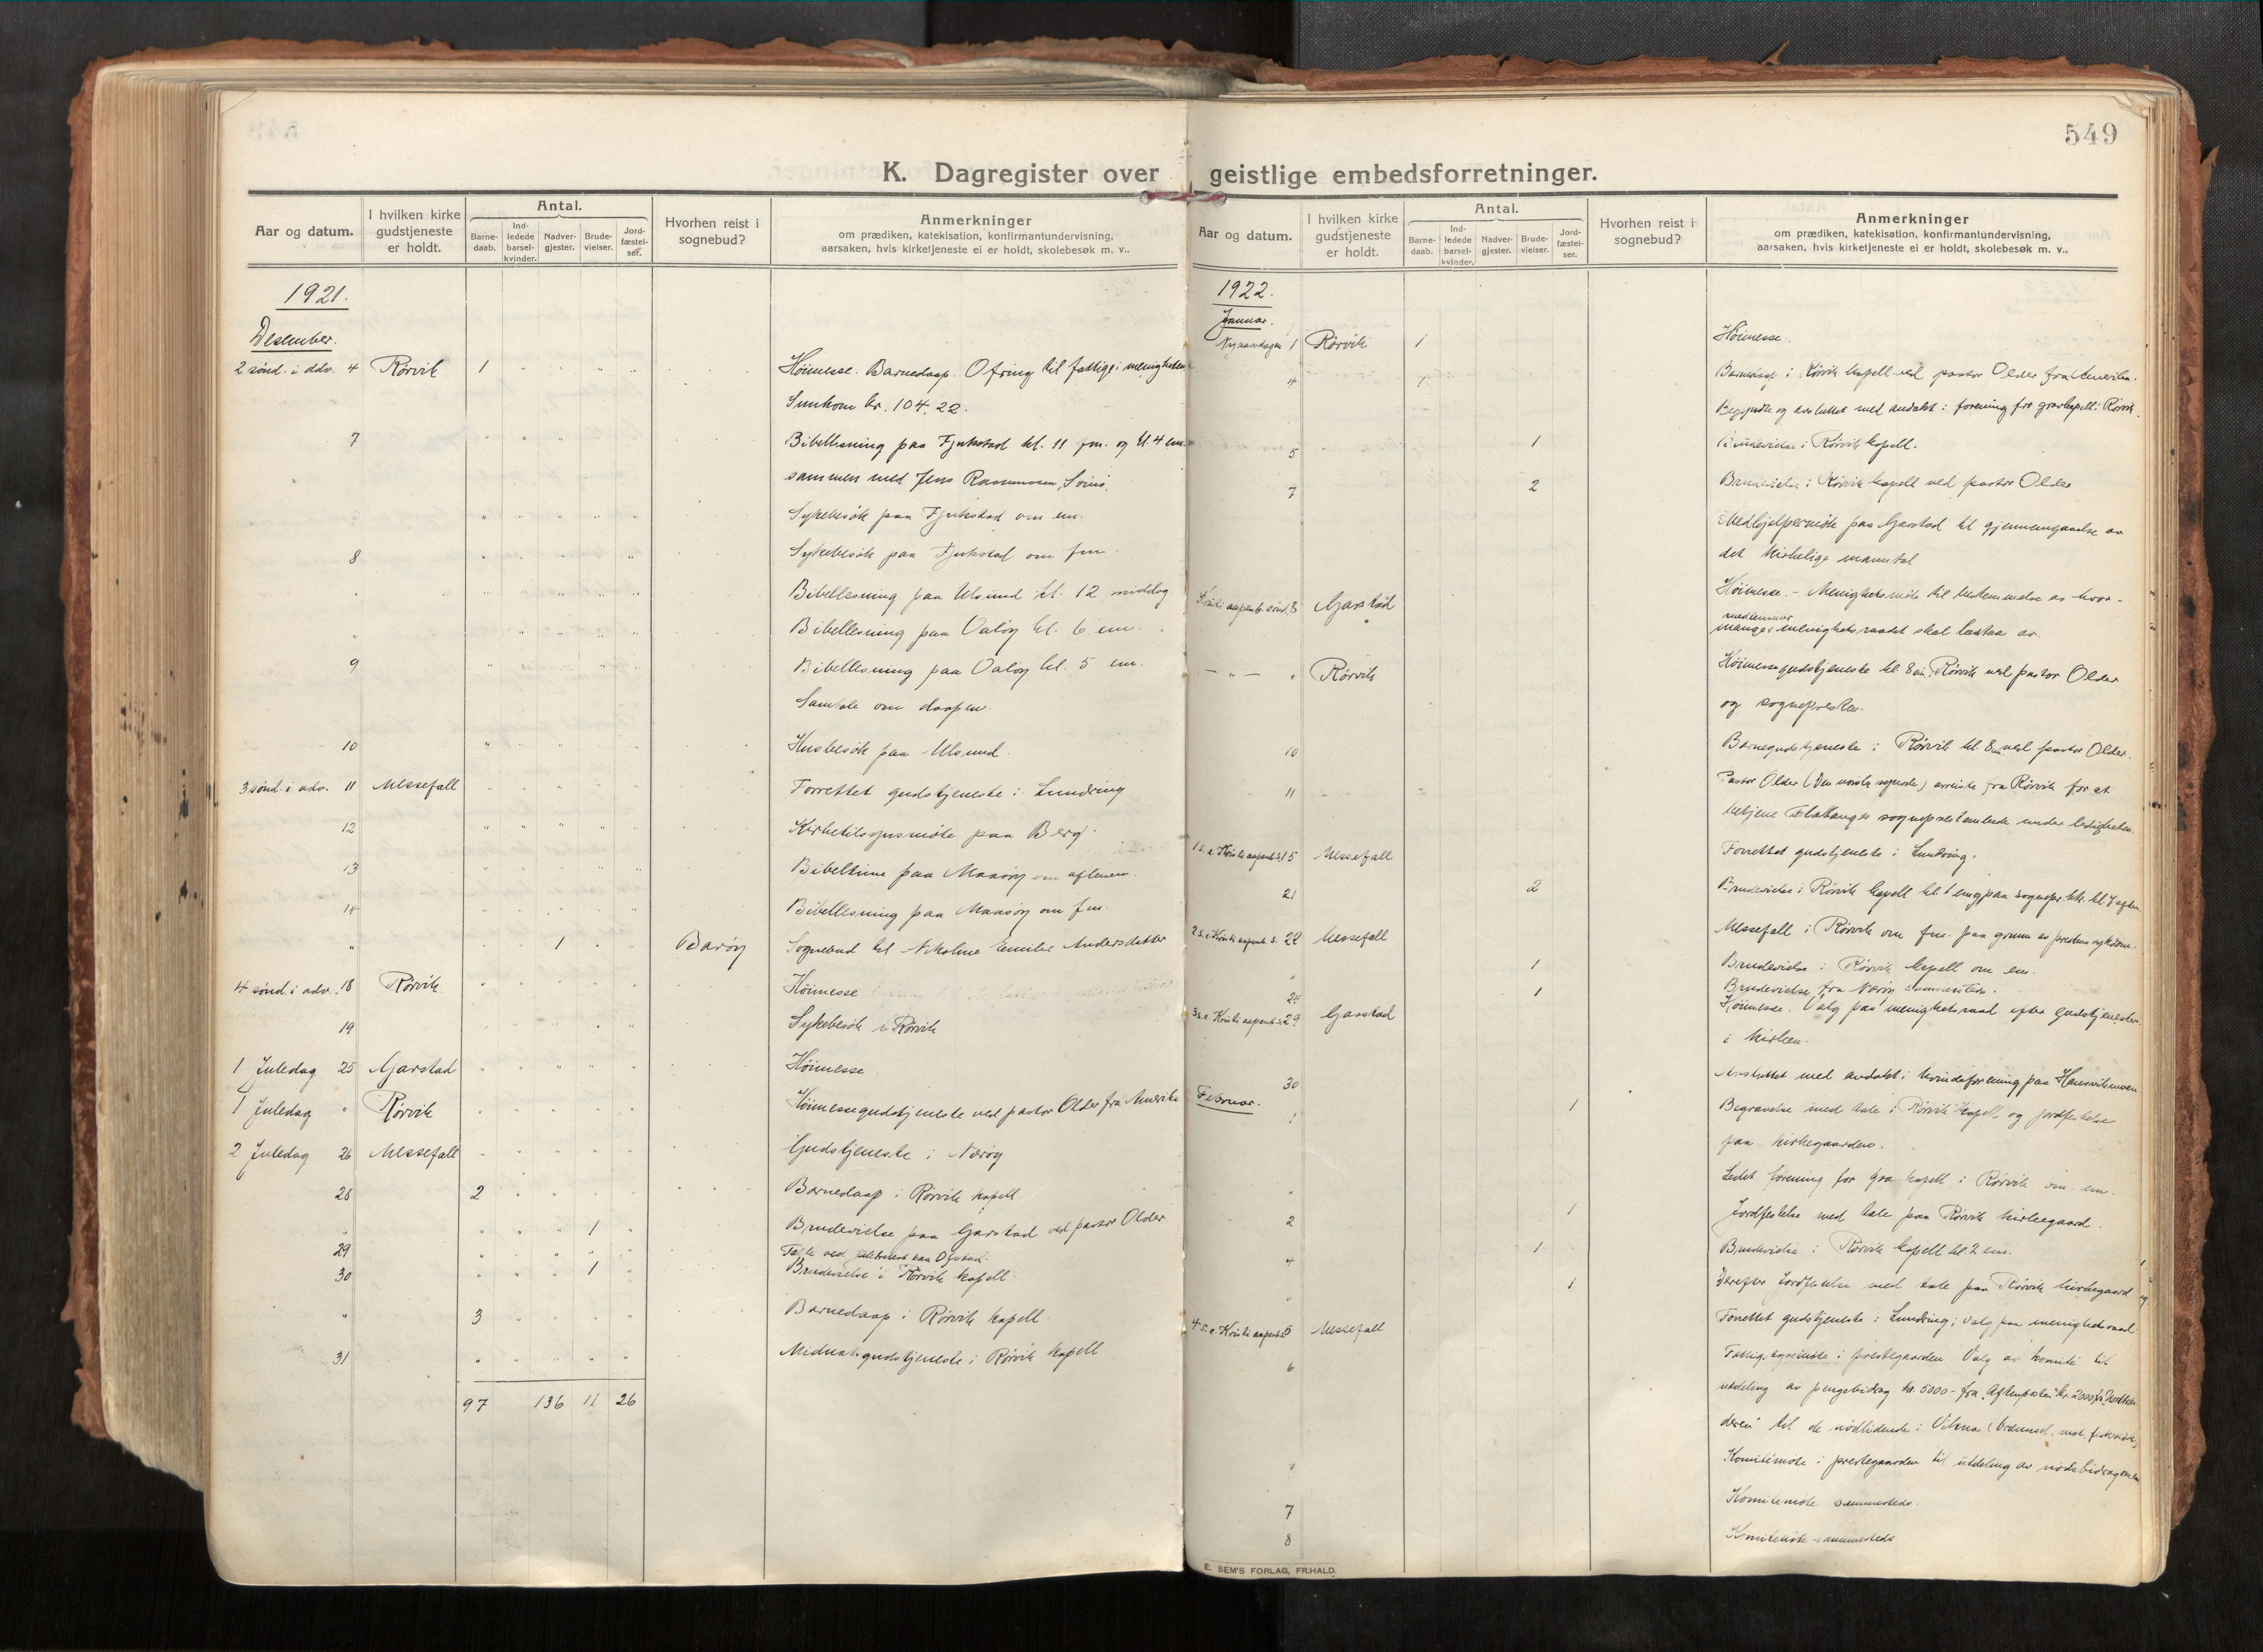 549
K. Dagregister over geistlige embedsforretninger.
Aar og datum.
I hvilken kirke gudstjeneste er holdt.
Antal.
Barnedaab.
Indledede barselkvinder.
Nadvergjester.
Brudevielser.
Jordfæstelser.
Hvorhen reist i sognebud?
Anmerkninger
om prædiken, katekisation, konfirmantundervisning,
aarsaken, hvis kirketjeneste ei er holdt, skolebesøk m. v..
1921.
Desember.
2 sønd. i adv. 4 Rørvik 1 Höimesse. Barnedaap. Ofring til fattige i menigheten
Innkom kr. 104,22.
7 Bibellesning paa Fjukstad kl. 11 fm. og kl. 4 em.
sammen med Jens Rasmussen,
Sykebesök paa Fjukstad om em.
8 Sykebesök paa Fjukstad om fm.
" Bibellesning paa Ulsund kl. 12 middag
" Bibellesning paa Valöy kl. 6 em.
9 Bibellesning paa Valöy kl. 5 em.
Samtale om daapen.
10 Husbesök paa Ulsund.
3 sønd. i adv. 11 Messefall Forrettet gudstjeneste i Lundring
12 möte paa Berg.
13 Bibeltime paa Maaöy om aftenen.
14 Bibellesning paa Maaöy om fm.
" 1 Baröy Sognebud til Nikoline Emilie Andersdatter
4 sønd. i adv. 18 Rørvik Höimesse
19 Sykebesök i Rørvik
1 Juledag 25 Garstad Höimesse
1 Juledag " Rørvik Höimessegudstjeneste ved pastor Older fra Amerika
2 Juledag 26 Messefall Gudstjeneste i Næröy
28 2 Barnedaap i Rørvik kapell
" 1 Brudevielse paa Garstad ved pastor Older
29 Talte ved paa Ofstad.
30 1 Brudevielse i Rørvik kapell.
" 3 Barnedaap i Rørvik kapell
31 Midnatsgudstjeneste i Rørvik kapell
97 136 11 26
Aar og datum.
I hvilken kirke gudstjeneste er holdt.
Antal.
Barnedaab.
Indledede barselkvinder.
Nadvergjester.
Brudevielser.
Jordfæstelser.
Hvorhen reist i sognebud?
Anmerkninger
om prædiken, katekisation, konfirmantundervisning,
aarsaken, hvis kirketjeneste ei er holdt, skolebesøk m. v..
1922.
Januar.
Nyaarsdagen 1 Rørvik 1 Höimesse.
4 1 Barnedaap i Rørvik kapell ved pastor Older fra Amerika.
Begyndte og avsluttet med andakt i forening for gravkapell i Rørvik
5 1 Brudevielse i Rørvik kapell.
7 2 Brudevielse i Rørvik kapell ved pastor Older
Medhjelpermöte paa Garstad til gjennemgaaelse av
det kirkelige manntal
Kristi aapenb. sönd. 8 Garstad Höimesse. – Menighetsmöte til bestemmelse av hvor-
mange medlemmer menighetsraadet skal bestaa av.
— " — " Rørvik Höimessegudstjeneste kl. 8 em. i Rørvik ved pastor Older
og sognepresten.
10 Barnegudstjeneste i Rørvik kl. 8 em. ved pastor Older.
11 Pastor Older (Den norske synode) avreiste fra Rørvik for at
betjene Flatanger sogneprestembede under ledigheten.
1 s. e. Kristi aapenb. 15 Messefall Forrettet gudstjeneste i Lundring.
21 2 Brudevielse i Rørvik kapell
2 s. e. Kristi aapenb. s. 22 Messefall Messefall i Rørvik om fm. paa grunn av prestens sykdom.
" 1 Brudevielse i Rørvik kapell om em.
24 1 Brudevielse fra Næröy sammesteds.
3 s. e. Kristi aapenb. 29 Garstad Höimesse. Valg paa menighetsraad efter gudstjenesten
i kirken.
30 Avsluttet med andakt i kvindeforening paa
Februar.
1 1 Begravelse med tale i Rørvik kapell og jordfestelse
paa kirkegaarden.
" Ledet forening for gravkapell i Rørvik om em.
2 1 Jordfestelse med tale paa Rørvik kirkegaard.
4 1 Brudevielse i Rørvik kapell kl. 2 em.
" 1 Derefter jordfestelse med tale paa Rørvik kirkegaard
4 s. e. Kristi aapenb. 5 Messefall Forrettet gudstjeneste i Lundring; valg paa menighetsraad.
6 Fattigstyremöte i prestegaarden. Valg av komité til
utdeling av pengebidrag kr. 5000- fra "Aftenposten" kr. 2000 fra
til de nödlidende i Vikna
" Komitémöte i prestegaarden til utdeling av nödsbidrag
7 Komitemöte sammesteds.
8 Komitemöte sammesteds
E. SEM'S FORLAG, FR.HALD.